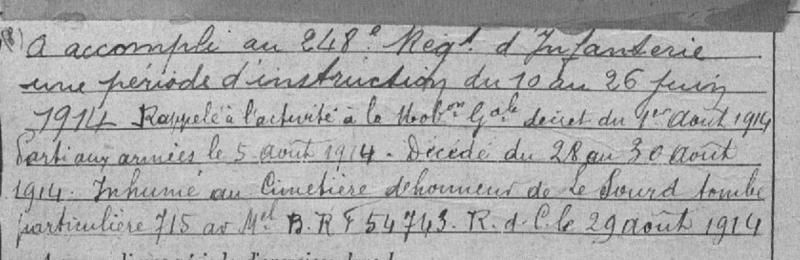 (8) A accompli au 248e Régt. d'Infanterie
une période d'instruction du 10 au 26 Juin
1914 Rappelé à l'activité à la Mobon Gale décret du 1er Août 1914
Parti aux armées le 5 août 1914. Décédé du 28 au 30 Août
1914. Inhumé au Cimetière d'honneur de Le Sourd tombe
particulière 715 av Mel B.R.F 54743. R. d. C. le 29 août 1914